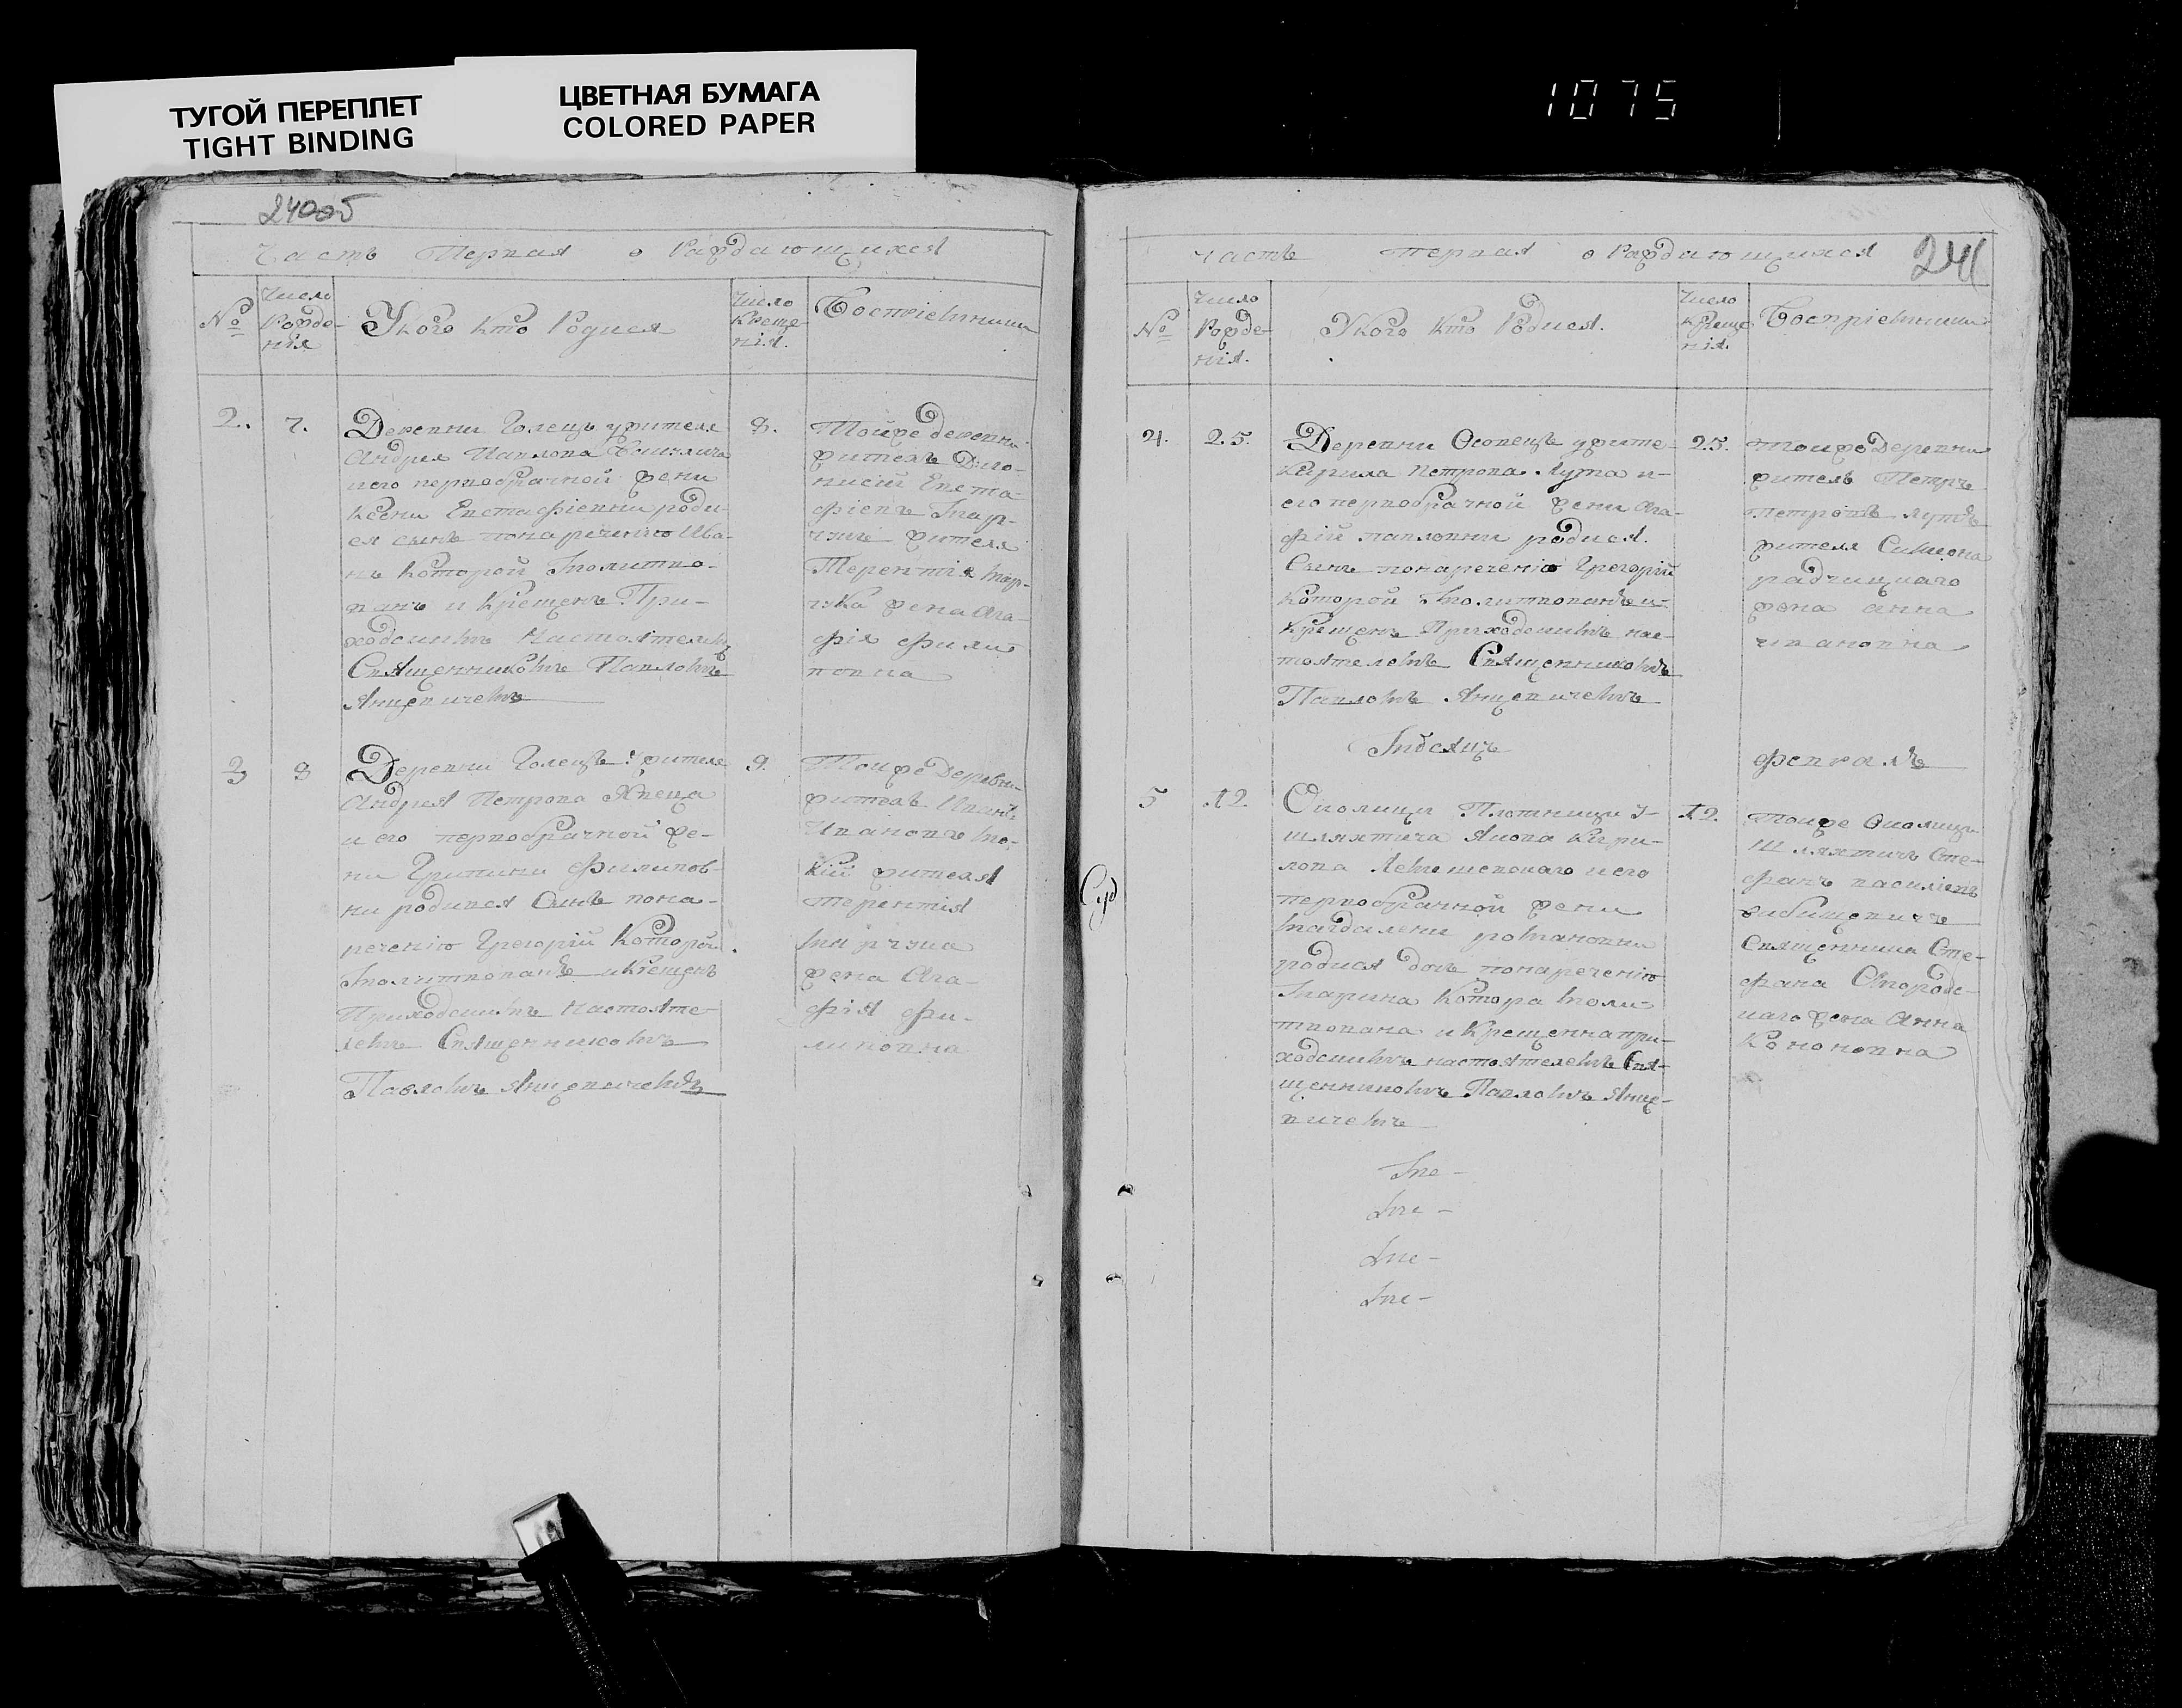 ТУГОЙ ПЕРЕПЛЕТ
TIGHT BINDING
ЦВЕТНАЯ БУМАГА
COLORED PAPER
1075
240об
Часть Первая о Раждающихся
№
Число
Рожде-
нія
У кого кто Родися
Число
Креще-
нія.
Воспріемники
2.
7.
Деревни Голецъ у жителя
Андрея Павлова
и его первобрачной жени
Ксени Евстафіевни роди-
ся сынъ по нареченію Ива-
нъ которой молитво-
ванъ и Крещенъ При-
ходскимъ Настоятелемъ
Священникомъ Павломъ
Янцевичемъ
8.
Тойже деревни
житель Дио-
нисій Евста-
фіевъ Мар-
чукъ жителя
Терентія Мар-
чука жена Ага-
фія Фили-
повна
3
8
Деревни Голецъ у жителя
Андрея Петрова
и его первобрачной же-
ни Филипов-
ни родився Сынъ по на-
реченію Грегорій Которой
Молитвованъ и Крещенъ
Приходскимъ Настояте-
лемъ Священникомъ
Павломъ Янцевичемъ
9.
Тоиже Деревни
житель Иванъ
Ивановъ
жителя
терентія
Марчука
жена Ага-
фія Фи-
липовна
часть первая о Раждающихся
241
№
Число
Рожде-
нія.
У кого кто Родися.
Число
Креще
нія.
Воспріемники
4.
25.
Деревни Осовецъ у жите-
Кирила Петрова Лута и
его первобрачной жени Ага-
фій павловни родися.
Сынъ по нареченію Грегорій
которой Молитвованъ и
Крещенъ Приходскимъ нас-
тоятелемъ Священникомъ
Павломъ Янцевичемъ
25.
тоиже Деревни
житель Петръ
петровъ лутъ
жителя Симеона
жена анна
ивановна
Мѣсяцъ
февралъ
5
12.
Околици Плотници у
шляхтича Якова Кири-
лова и его
первобрачной жени
Магдалени романовни
родися дочъ по нареченію
Марина Котора моли-
твована и Крещенна при-
ходскимъ настоятелемъ Свя-
щенникомъ Павломъ Янце-
вичемъ
12.
тоиже Околици
Шляхтичъ Сте-
фанъ василіевъ
Священника Сте-
фана
жена Анна
Кононовна